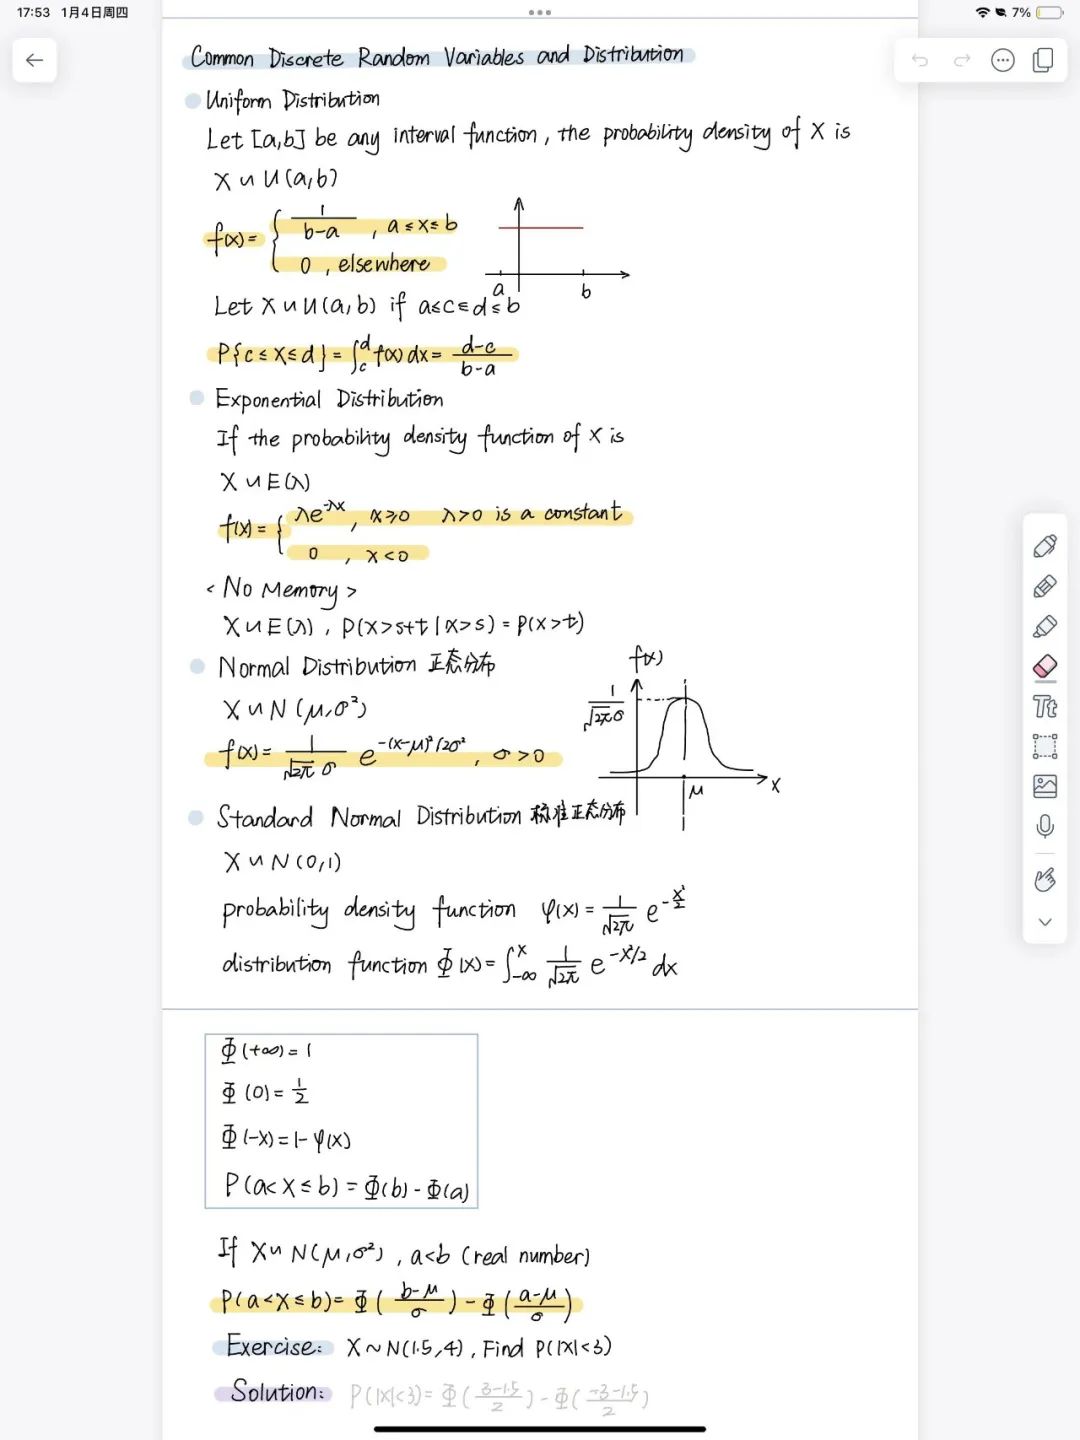 17:53 1月4日周四
7%
Common Discrete Random Variables and Distribution
Uniform Distribution
Let [a,b] be any interval function, the probability density of X is
X ∽ U(a,b)
f(x) = { 1/(b-a) , a≤x≤b
0 , elsewhere
a b
Let X ∽ U(a,b) if a≤c≤d≤b
P{c≤X≤d} = ∫_c^d f(x) dx = (d-c)/(b-a)
Exponential Distribution
If the probability density function of X is
X ∽ E(λ)
f(x) = { λe^-λx , x≥0 λ>0 is a constant
0 , x<0
<No Memory>
X ∽ E(λ) , P(x>s+t | x>s) = P(x>t)
Normal Distribution 正态分布
X ∽ N(μ,σ²)
f(x) = 1/(√2π σ) e^-(x-μ)²/2σ² , σ>0
f(x)
1/(√2π σ)
μ
x
Standard Normal Distribution 标准正态分布
X ∽ N(0,1)
probability density function φ(x) = 1/√2π e^-x²/2
distribution function Φ(x) = ∫_-∞^x 1/√2π e^-x²/2 dx
Φ(+∞) = 1
Φ(0) = 1/2
Φ(-x) = 1-φ(x)
P(a<X≤b) = Φ(b) - Φ(a)
If X ∽ N(μ,σ²) , a<b (real number)
P(a<X≤b) = Φ((b-μ)/σ) - Φ((a-μ)/σ)
Exercise: X~N(1.5,4) , Find P(|X|<3)
Solution: P(|X|<3) = Φ((3-1.5)/2) - Φ((-3-1.5)/2)
Tt